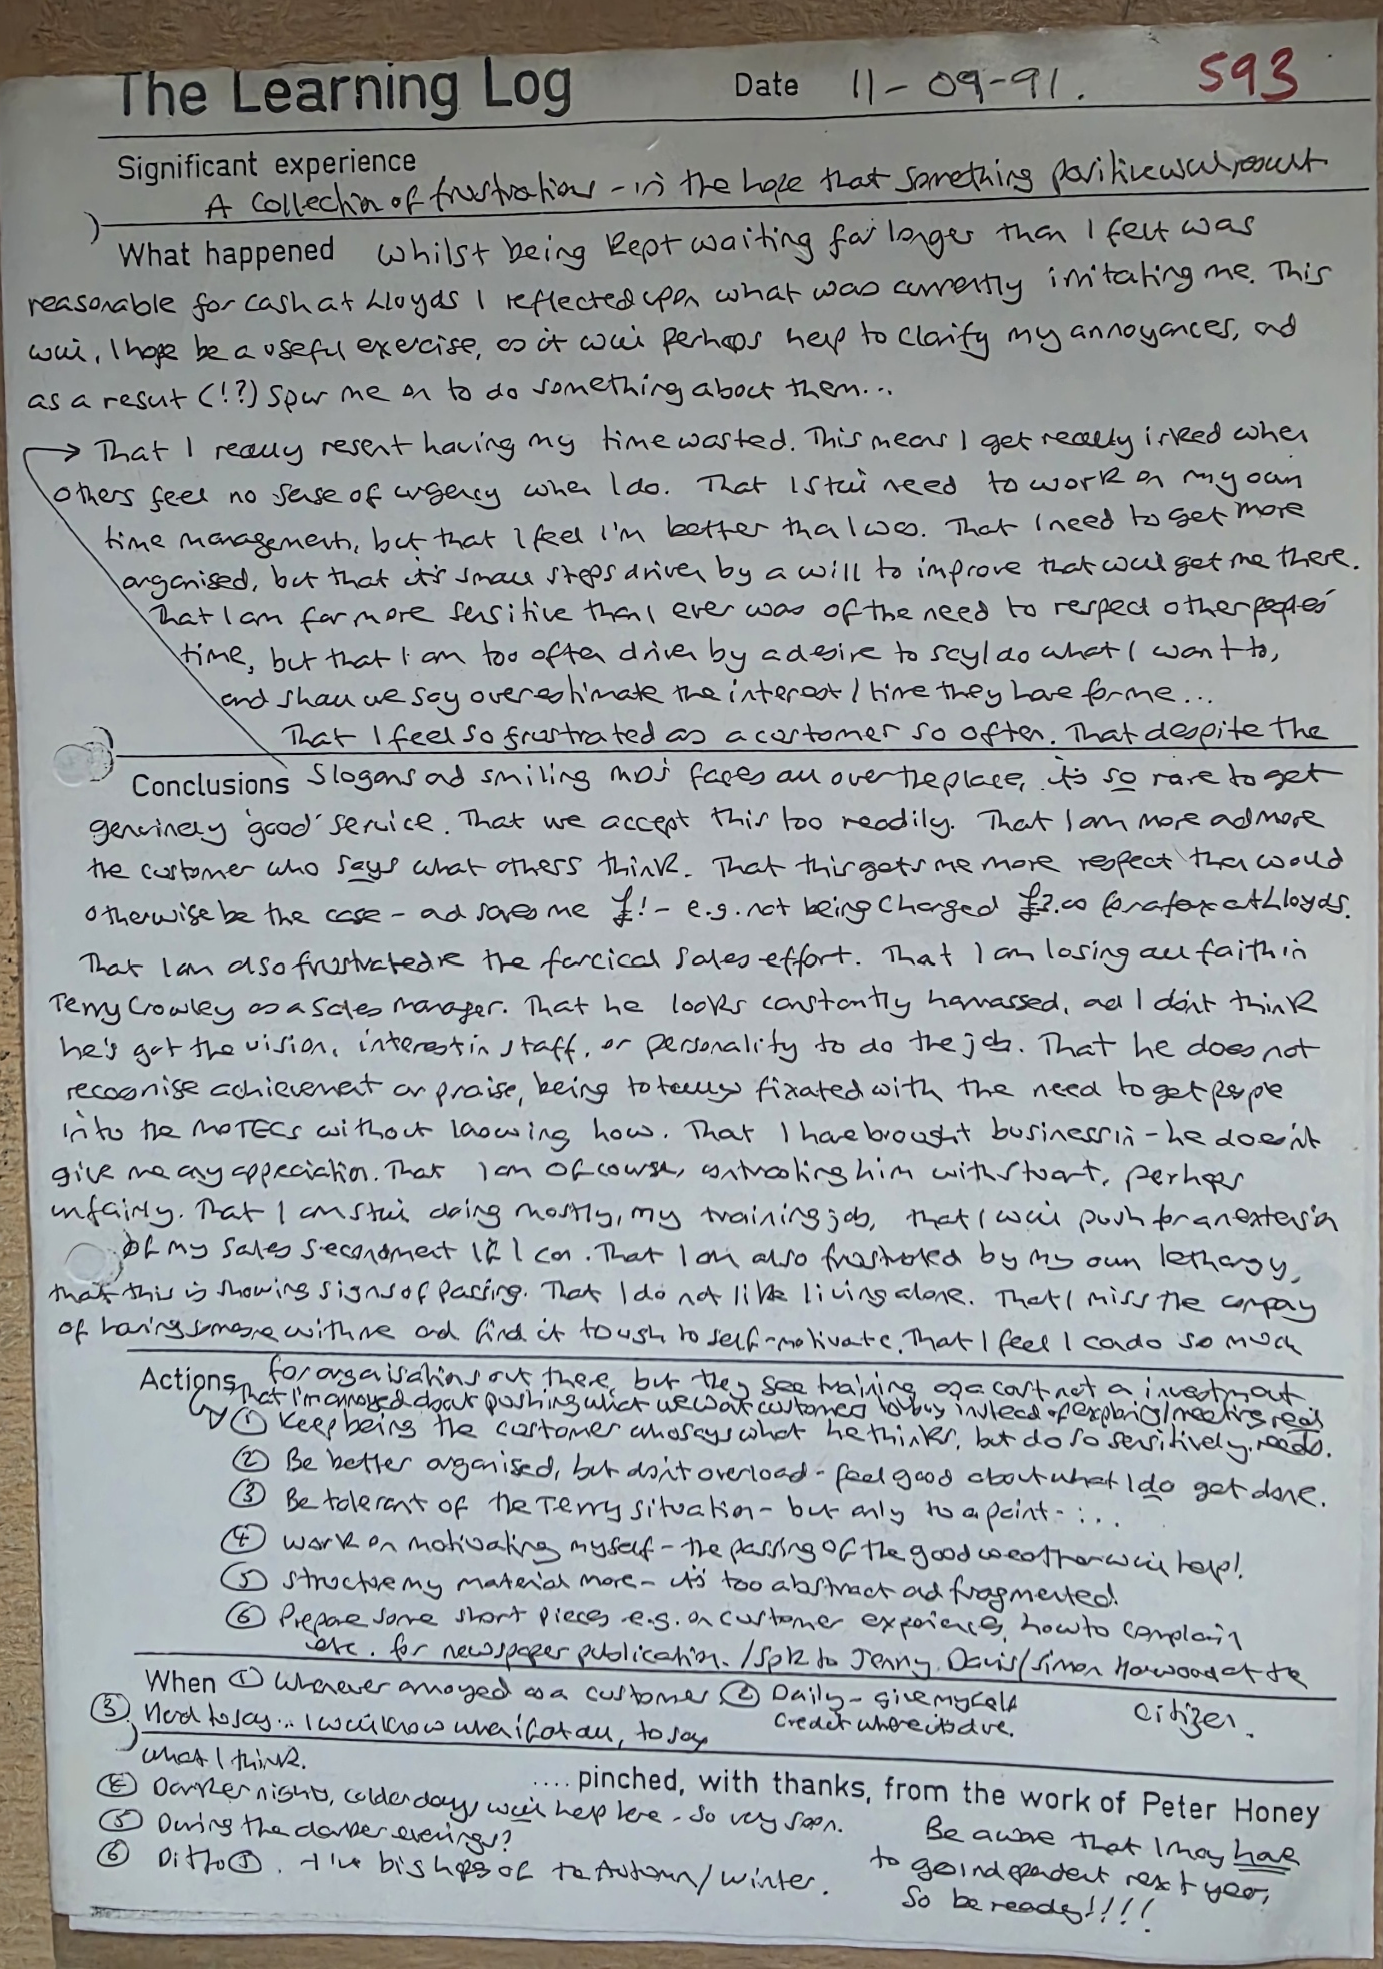 The Learning Log Date 11-09-91. 593
Significant experience
A collection of frustrations - in the hope that something positive will result
What happened whilst being kept waiting far longer than I felt was
reasonable for cash at Lloyds I reflected upon what was currently irritating me. This
will, I hope be a useful exercise, as it will perhaps help to clarify my annoyances, and
as a result (!?) spur me on to do something about them...
→ That I really resent having my time wasted. This means I get really irked when
others feel no sense of urgency when I do. That I still need to work on my own
time management, but that I feel I'm better than I was. That I need to get more
organised, but that it's small steps driven by a will to improve that will get me there.
That I am far more sensitive than I ever was of the need to respect other peoples'
time, but that I am too often driven by a desire to say/do what I want to,
and shall we say overestimate the interest/time they have for me...
That I feel so frustrated as a customer so often. That despite the
Conclusions slogans and smiling faces all over the place, it's so rare to get
genuinely 'good' service. That we accept this too readily. That I am more and more
the customer who says what others think. That this gets me more respect than would
otherwise be the case - and saves me £! - e.g. not being charged £3.00 for a fax at Lloyds.
That I am also frustrated re the farcical sales effort. That I am losing all faith in
Terry Crowley as a sales manager. That he looks constantly harrassed, and I don't think
he's got the vision, interest in staff, or personality to do the job. That he does not
recognise achievement or praise, being totally fixated with the need to get people
into the MOTECs without knowing how. That I have brought business in - he doesn't
give me any appreciation. That I am of course, contrasting him with Stuart, perhaps
unfairly. That I am still doing mostly, my training job, that I will push for an extension
of my sales secondment if I can. That I am also frustrated by my own lethargy,
that this is showing signs of passing. That I do not like living alone. That I miss the company
of having someone with me and find it tough to self-motivate. That I feel I can do so much
Actions for organisations out there, but they see training as a cost not a investment
That I'm annoyed about pushing what we want customers to buy instead of exploring/meeting real
① Keep being the customer who says what he thinks, but do so sensitively. needs.
② Be better organised, but don't overload - feel good about what I do get done.
③ Be tolerant of the Terry situation - but only to a point - ...
④ Work on motivating myself - the passing of the good weather will help!
⑤ Structure my material more - it's too abstract and fragmented!
⑥ Prepare some short pieces e.g. on customer experience, how to complain
etc. for newspaper publication. /Spk to Jenny Davis/Simon Harwood at the
When ① Whenever annoyed as a customer. ② Daily - give myself Citizen.
③ Need to say... I will know when if at all, to say credit where its due.
what I think.
④ Darker nights, colder days will help here - so very soon.
.... pinched, with thanks, from the work of Peter Honey
⑤ During the darker evenings?
⑥ Ditto ⑤. I've big hopes of the Autumn/Winter.
Be aware that I may have
to go independent next year,
so be ready!!!!